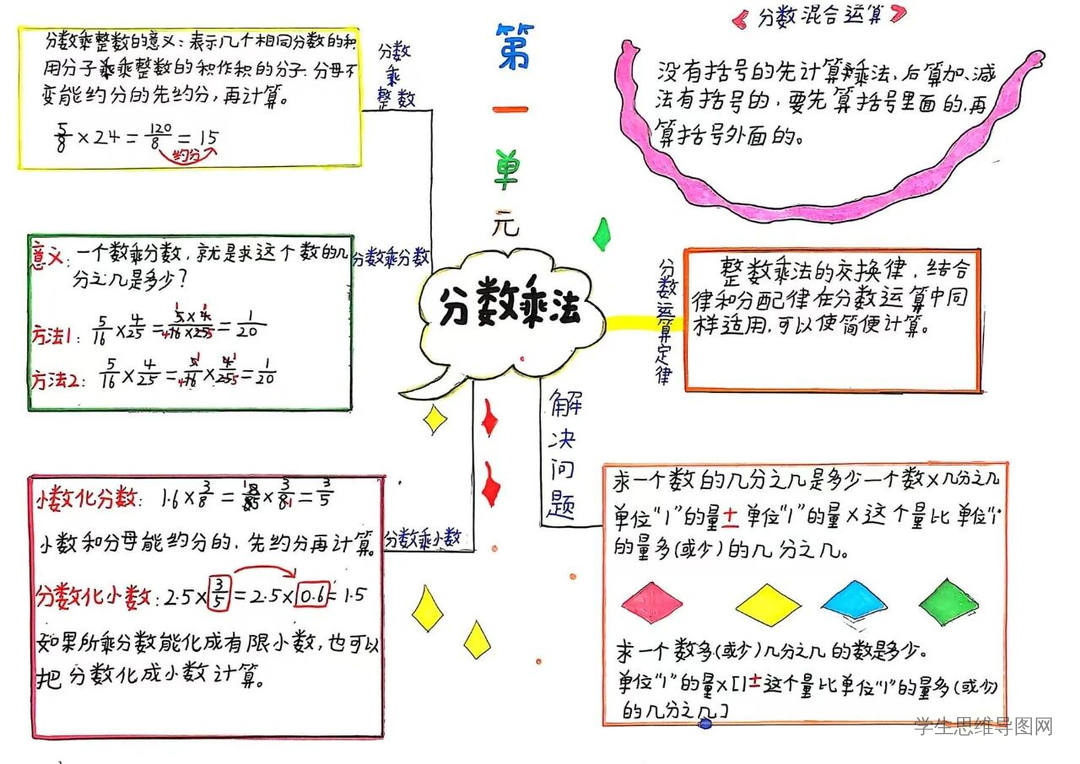 第一单元
分数乘法
分数乘整数
分数乘整数的意义:表示几个相同分数的和
用分子乘乘整数的积作积的分子.分母不
变能约分的先约分,再计算。
5/8×24=120/8=15
约分
分数乘分数
意义:一个数乘分数,就是求这个数的几
分之几是多少?
方法1: 5/16×4/25=5×4/16×25=1/20
方法2: 5/16×4/25=5/16×4/25=1/20
分数乘小数
小数化分数: 1.6×3/8= ×3/8=3/5
小数和分母能约分的,先约分再计算。
分数化小数:2.5×3/5=2.5×0.6=1.5
如果所乘分数能化成有限小数,也可以
把分数化成小数计算。
分数混合运算
没有括号的先计算乘法,后算加、减
法有括号的,要先算括号里面的,再
算括号外面的。
分数运算定律
整数乘法的交换律,结合
律和分配律在分数运算中同
样适用,可以使简便计算。
解决问题
求一个数的几分之几是多少一个数×几分之几
单位“1”的量±单位“1”的量×这个量比单位“1”
的量多(或少)的几分之几。
求一个数多(或少)几分之几的数是多少。
单位“1”的量×[1±这个量比单位“1”的量多(或少)
的几分之几]
学生思维导图网